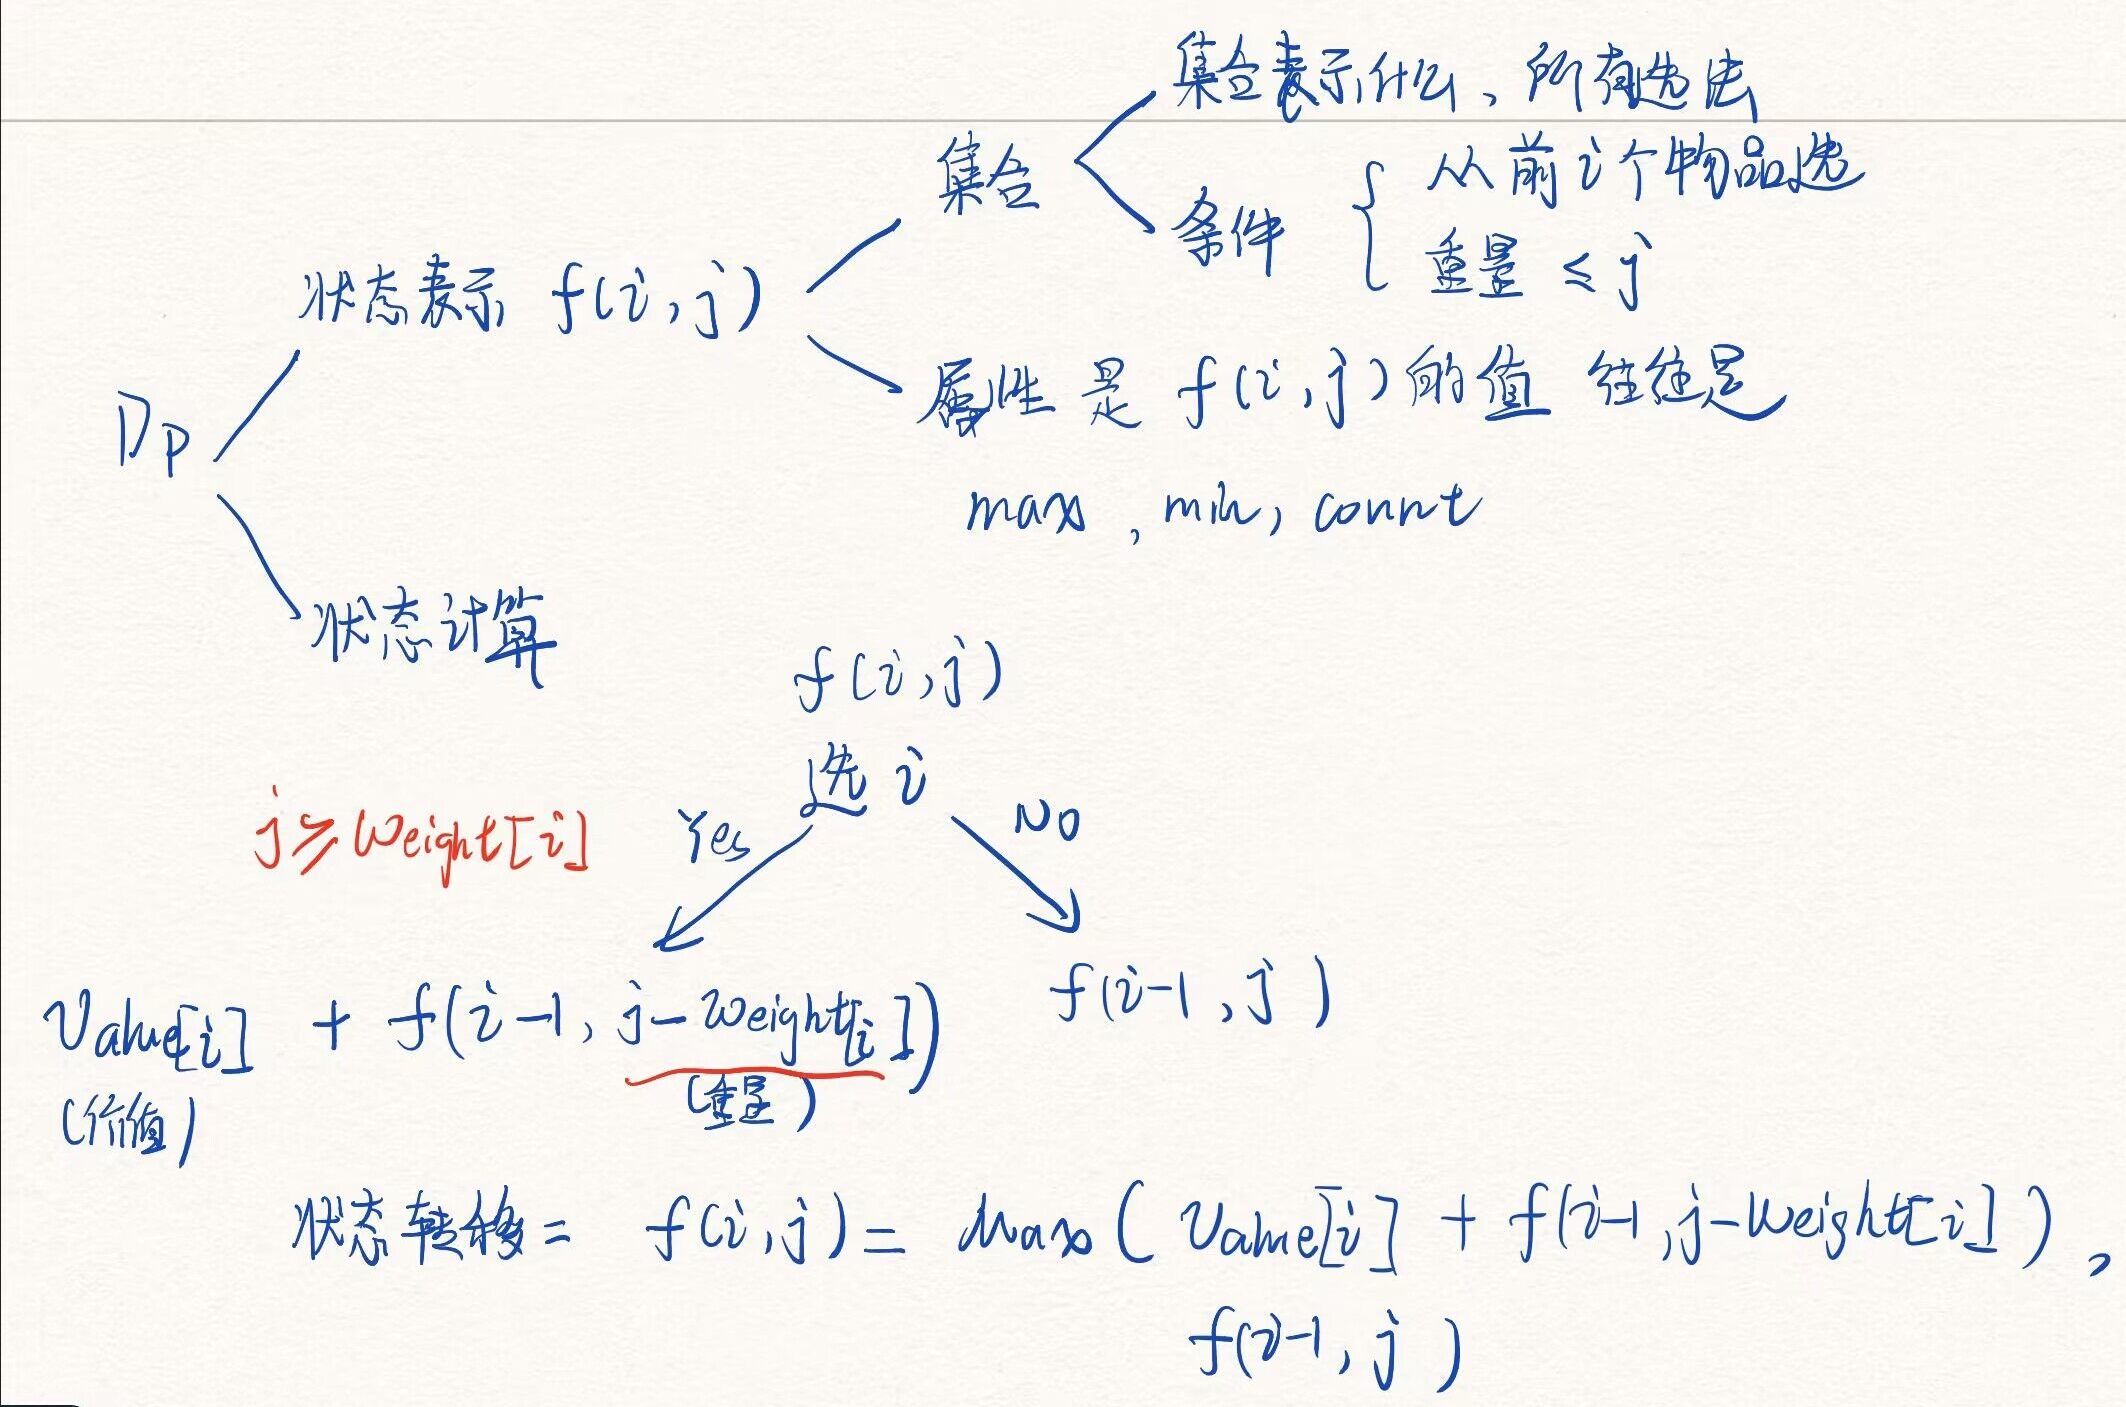 集合表示什么、所有选法
集合
从前i个物品选
条件
重量 ≤ j
状态表示 f(i,j)
属性 是 f(i,j)的值 往往是
Dp
max , min, count
状态计算
f(i,j)
选 i
j≥Weight[i]
Yes
No
Value[i] + f(i-1, j-Weight[i])
f(i-1,j)
(价值)
(重量)
状态转移= f(i,j)= Max( Value[i] + f(i-1,j-Weight[i]) ,
f(i-1,j)